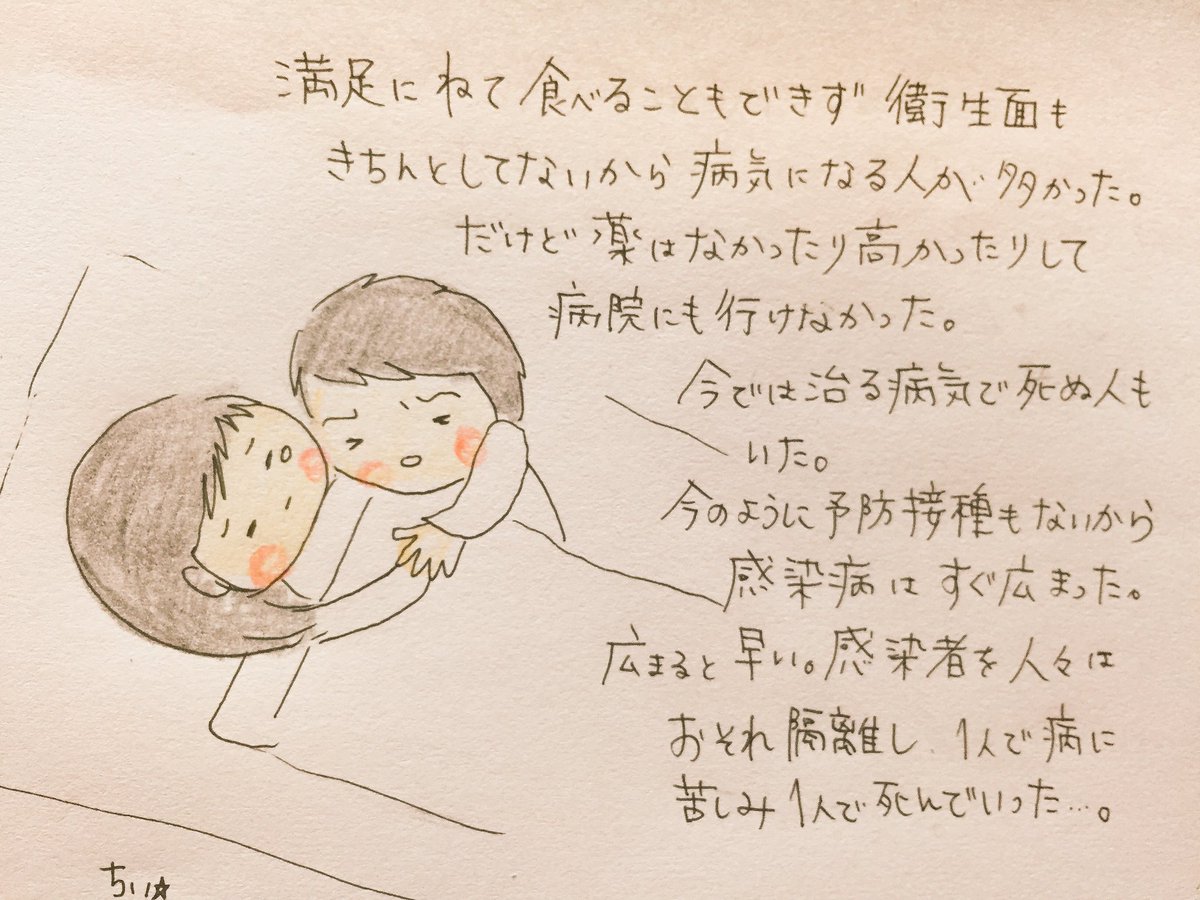 満足にねて食べることもできず衛生面も
きちんとしてないから病気になる人が多かった。
だけど薬はなかったり高かったりして
病院にも行けなかった。
今では治る病気で死ぬ人も
いた。
今のように予防接種もないから
感染病はすぐ広まった。
広まると早い。感染者を人々は
おそれ隔離し、1人で病に
苦しみ1人で死んでいった…。
ちぃ☆